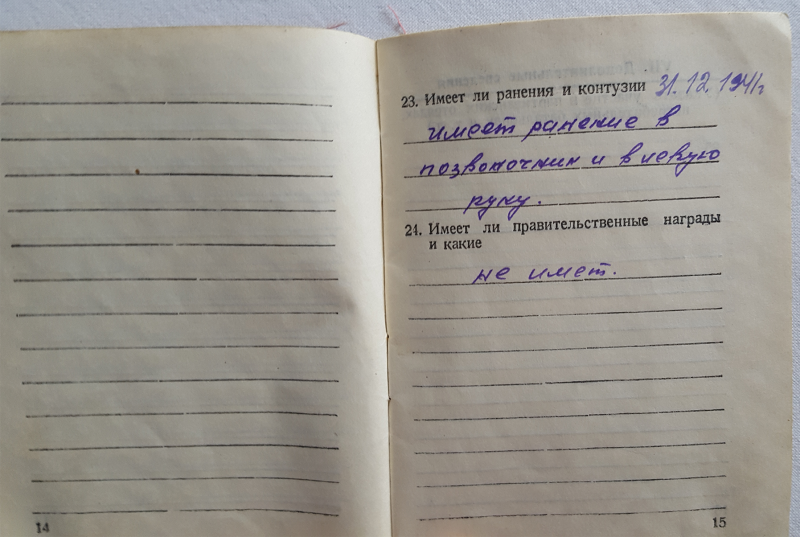 23. Имеет ли ранения и контузии 31.12.1941г
имеет ранение в
позвоночник и в левую
руку.
24. Имеет ли правительственные награды
и какие
не имет.
14
15